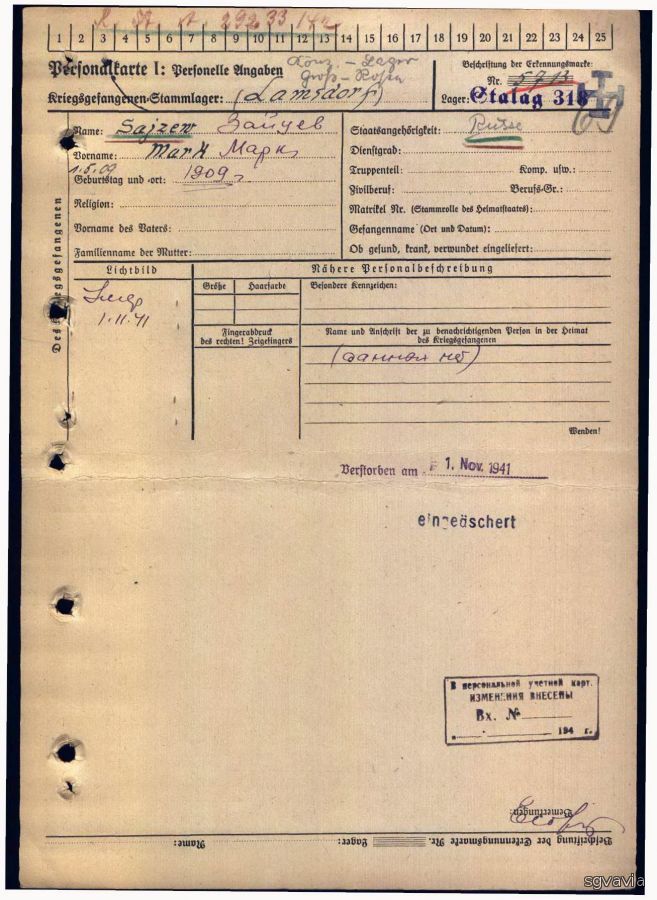 1 2 3 4 5 6 7 8 9 10 11 12 13 14 15 16 17 18 19 20 21 22 23 24 25
Personalkarte I: Personelle Angaben
Konz. - Lager
Groß - Rosen
Kriegsgefangenen-Stammlager: (Lamsdorf)
Beschriftung der Erkennungsmarke:
Nr.
Lager: Stalag 318
Des Kriegsgefangenen
Name: Sajzew Зайцев
Vorname: Mark Марк
1.5.09
Geburtstag und -ort: 1909
Religion:
Vorname des Vaters:
Familienname der Mutter:
Staatsangehörigkeit: Russe
Dienstgrad:
Truppenteil: Komp. usw.:
Zivilberuf: Berufs-Gr.:
Matrikel Nr. (Stammrolle des Heimatstaates):
Gefangennahme (Ort und Datum):
Ob gesund, krank, verwundet eingeliefert:
Lichtbild
1.11.41
Nähere Personalbeschreibung
Größe Haarfarbe Besondere Kennzeichen:
Fingerabdruck
des rechten! Zeigefingers
Name und Anschrift der zu benachrichtigenden Person in der Heimat
des Kriegsgefangenen
Wenden!
Verstorben am 1. Nov. 1941
eingeäschert
В персональной учетной карт.
ИЗМЕНЕНИЯ ВНЕСЕНЫ
Вх. №
194 г.
Bemerkungen:
Beschriftung der Erkennungsmarke Nr. Lager: Name:
sgvavia